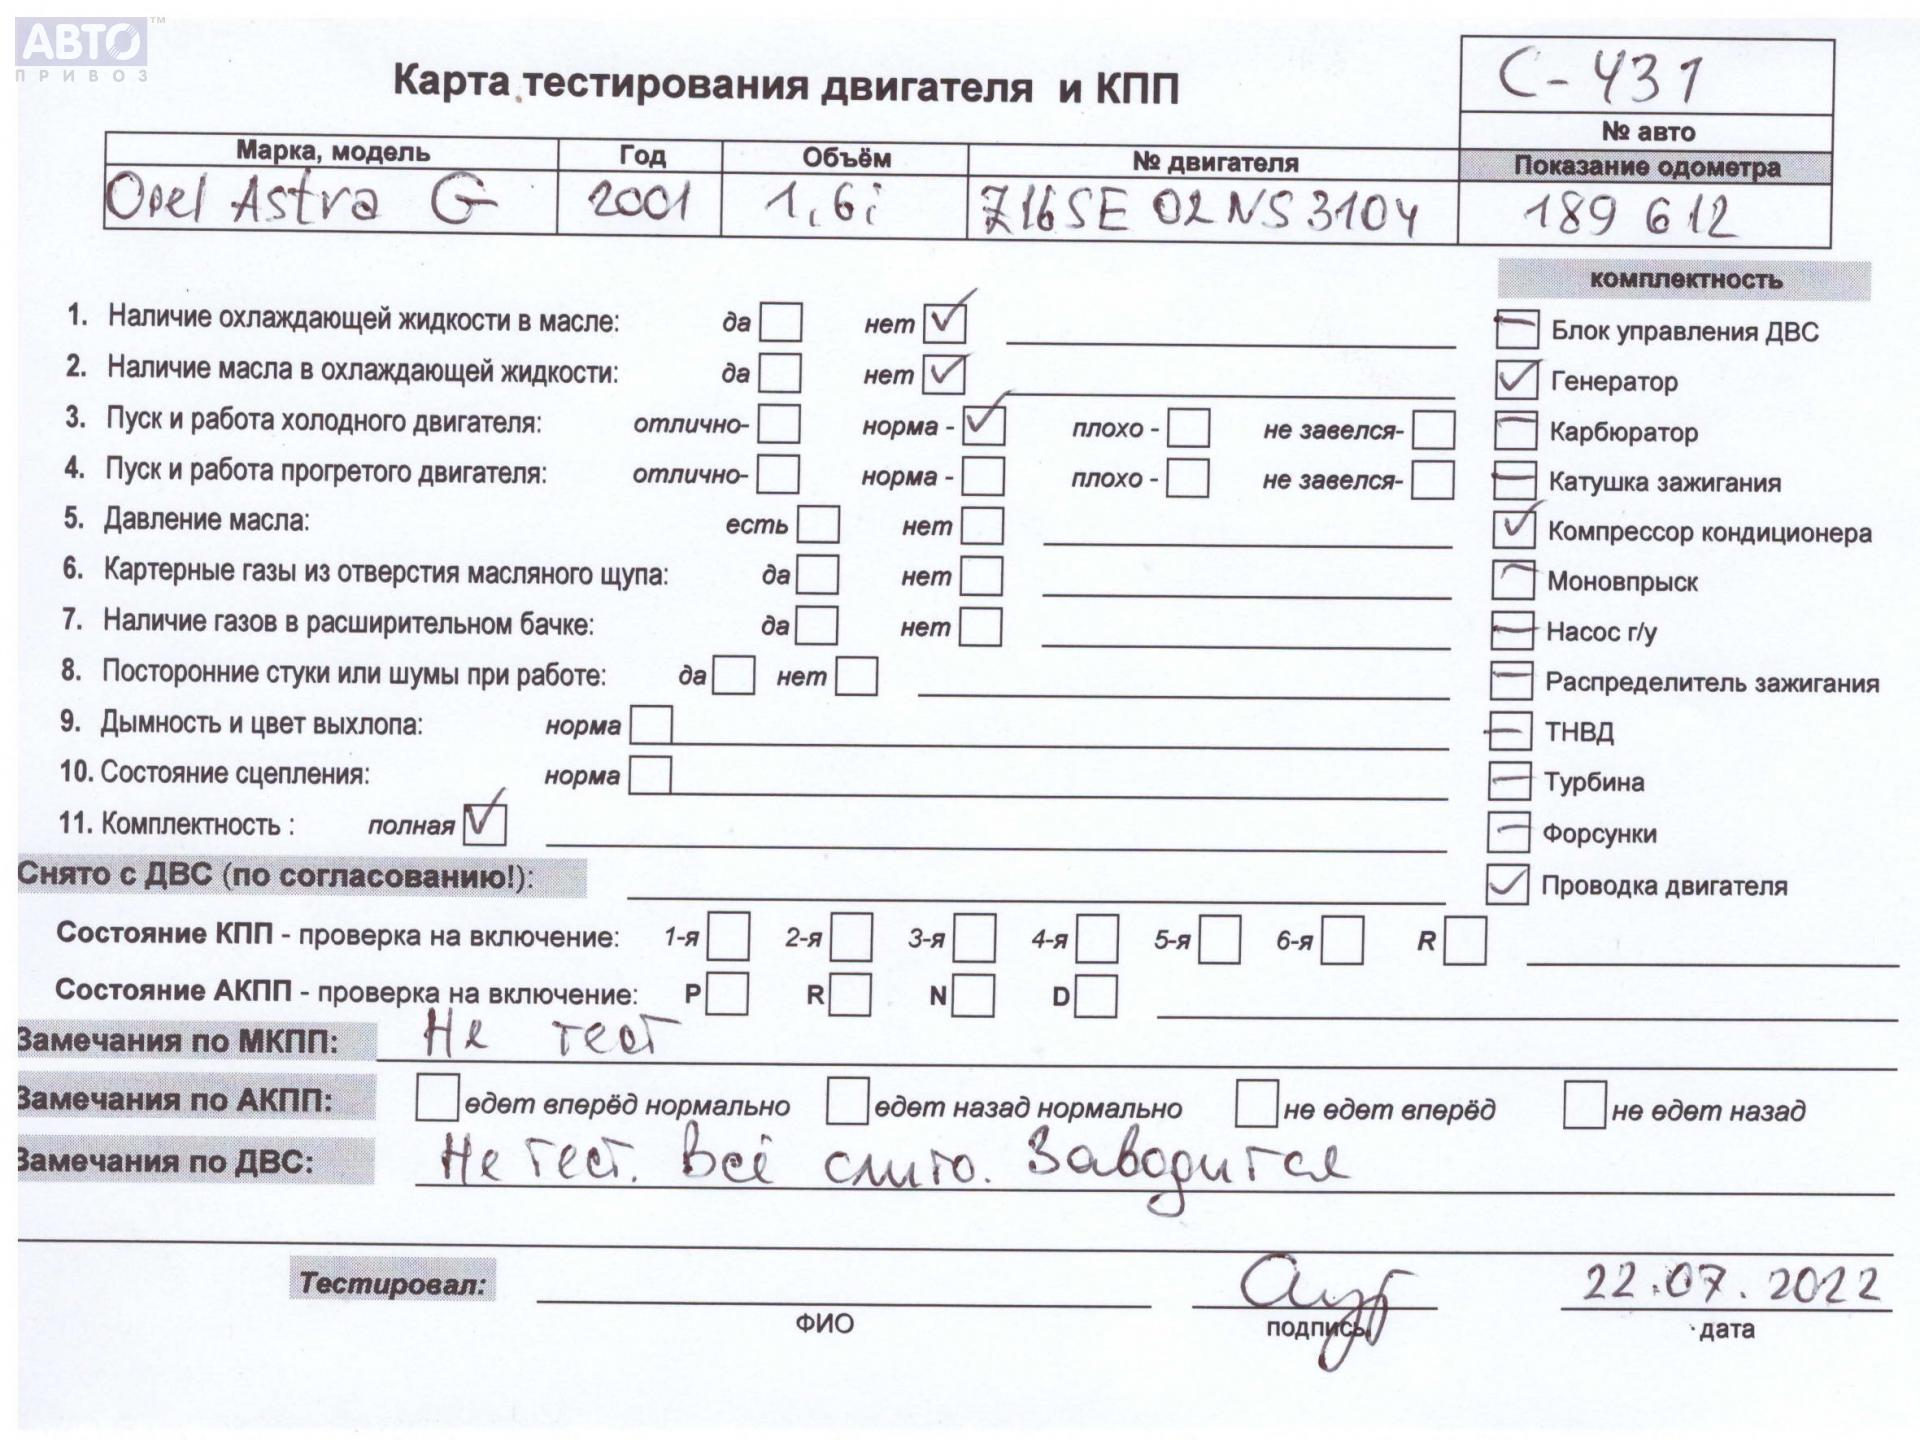 АВТО™
ПРИВОЗ
С-431
Карта тестирования двигателя и КПП
№ авто
Марка, модель Год Объём № двигателя Показание одометра
Opel Astra G 2001 1,6i Z16SE 02NS3104 189 612
комплектность
1. Наличие охлаждающей жидкости в масле: да нет Блок управления ДВС
2. Наличие масла в охлаждающей жидкости: да нет Генератор
3. Пуск и работа холодного двигателя: отлично- норма - плохо - не завелся- Карбюратор
4. Пуск и работа прогретого двигателя: отлично- норма - плохо - не завелся- Катушка зажигания
5. Давление масла: есть нет Компрессор кондиционера
6. Картерные газы из отверстия масляного щупа: да нет Моновпрыск
7. Наличие газов в расширительном бачке: да нет Насос г/у
8. Посторонние стуки или шумы при работе: да нет Распределитель зажигания
9. Дымность и цвет выхлопа: норма ТНВД
10. Состояние сцепления: норма Турбина
11. Комплектность : полная Форсунки
Снято с ДВС (по согласованию!): Проводка двигателя
Состояние КПП - проверка на включение: 1-я 2-я 3-я 4-я 5-я 6-я R
Состояние АКПП - проверка на включение: P R N D
Замечания по МКПП: Не тест
Замечания по АКПП: едет вперёд нормально едет назад нормально не едет вперёд не едет назад
Замечания по ДВС: Не тест. Всё слито. Заводится
Тестировал: 22.07.2022
ФИО подпись дата